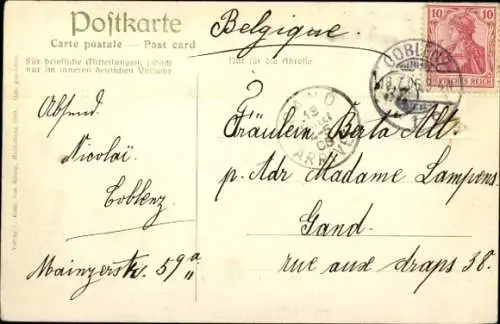 Postkarte
Carte postale — Post card
Für briefliche Mitteilungen, jedoch
nur im inneren deutschen Verkehr
Nur für die Adresse
Belgique.
10 10
DEUTSCHES REICH
COBLENZ
GAND
19
06
ARRIVÉE
Absend.
Nicolaï
Coblenz
Mainzerstr. 59a
Fräulein Berta Alt.
p. Adr Madame Lampens
Gand.
rue aux draps 38.